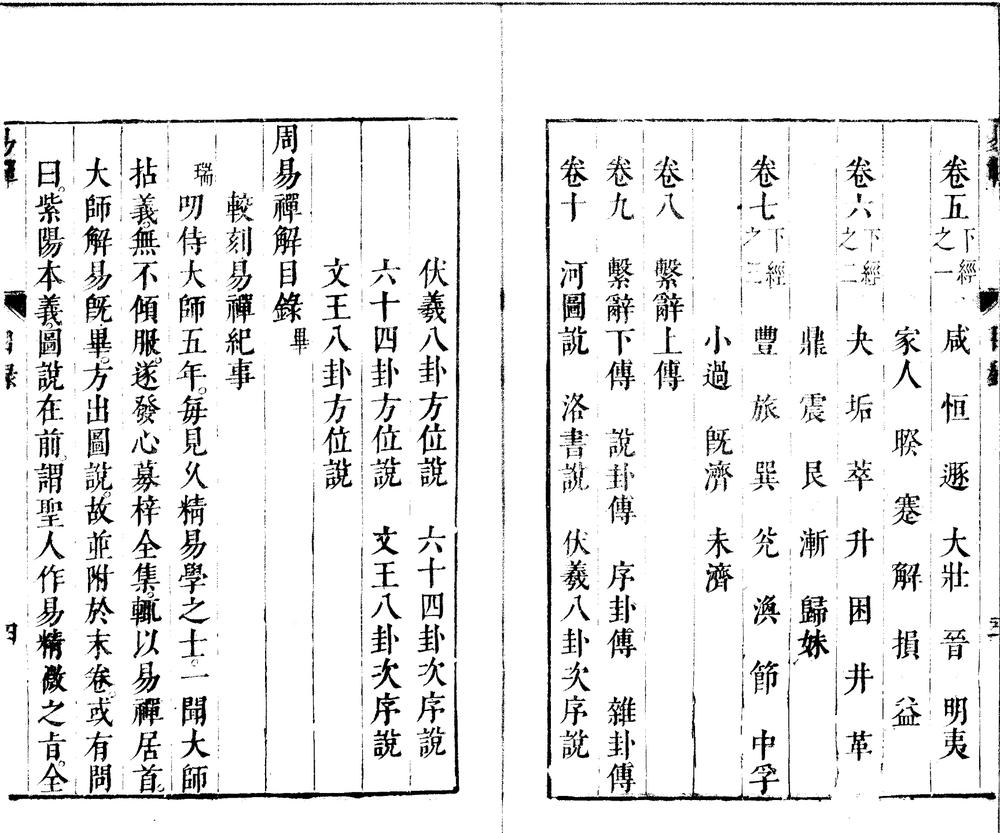 卷五下經之一　咸　恒　遯　大壯　晉　明夷
家人　睽　蹇　解　損　益
卷六下經之二　夬　垢　萃　升　困　井　革
鼎　震　艮　漸　歸妹
卷七下經之三　豐　旅　巽　兊　渙　節　中孚
小過　旣濟　未濟
卷八　繫辭上傳
卷九　繫辭下傳　說卦傳　序卦傳　雜卦傳
卷十　河圖說　洛書說　伏羲八卦次序說
伏羲八卦方位說　六十四卦次序說
六十四卦方位說　文王八卦次序說
文王八卦方位說
周易禪解目錄畢
較刻易禪紀事
瑞叨侍大師五年。每見久精易學之士。一聞大師
拈義。無不傾服。遂發心募梓全集。輒以易禪居首。
大師解易旣畢。方出圖說。故並附於末卷。或有問
曰。紫陽本義。圖說在前。謂聖人作易精微之旨。全
易禪
目錄
四